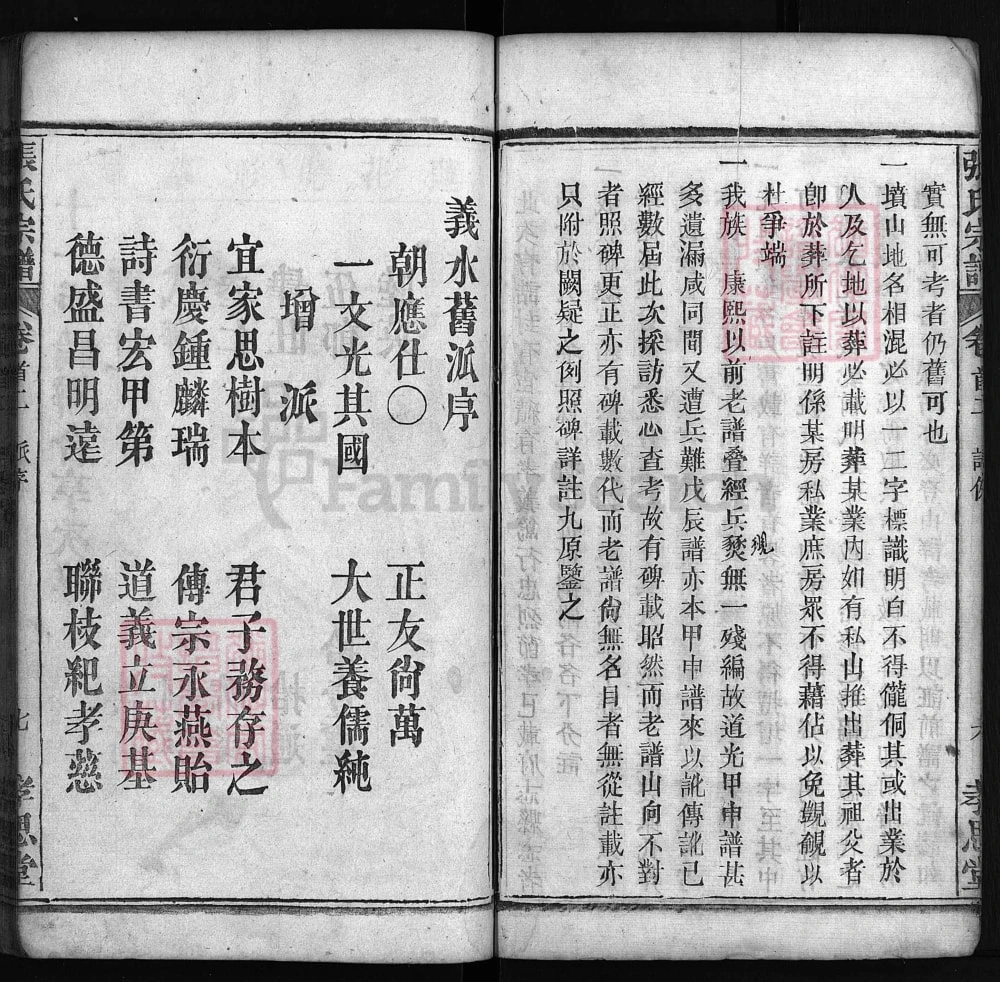 張氏宗譜
卷首二
孝思堂
實無可考者仍舊可也
一墳山地名相混必以一二字標識明白不得儱侗其或出業於
人及乞地以葬必載明葬某業內如有私山推出葬其祖父者
卽於葬所下註明係某房私業庶房眾不得藉佔以免覬覦以
杜爭端
一我族 康熙以前老譜叠經兵燹無一殘編故道光甲申譜甚
現
多遺漏咸同間又遭兵難戊辰譜亦本甲申譜來以訛傳訛已
經數屆此次採訪悉心查考故有碑載昭然而老譜山向不對
者照碑更正亦有碑載數代而老譜尙無名目者無從註載亦
只附於闕疑之例照碑詳註九原鑒之
義水舊派序
朝應仕〇 正友尙萬
一文光其國 大世養儒純
增派
宜家思樹本 君子務存之
衍慶鍾麟瑞 傳宗永燕貽
詩書宏甲第 道義立庚基
德盛昌明遠 聯枝紀孝慈
張氏宗譜
卷首二 派序
七 孝思堂
FamilySearch